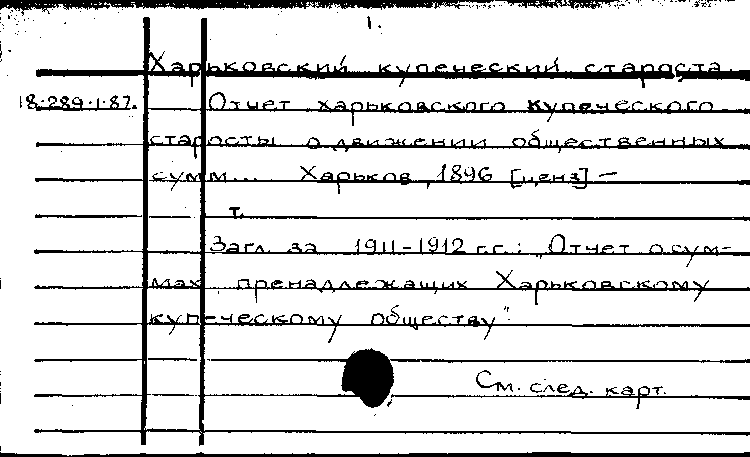 1.
Харьковский купеческий староста.
18.289.1.87. Отчет харьковского купеческого
старосты о движении общественных
сумм... Харьков, 1896 [ценз] –
т.
Загл. за 1911-1912 г.г.: „Отчет о сум-
мах пренадлежащих Харьковскому
купеческому обществу".
См. след. карт.